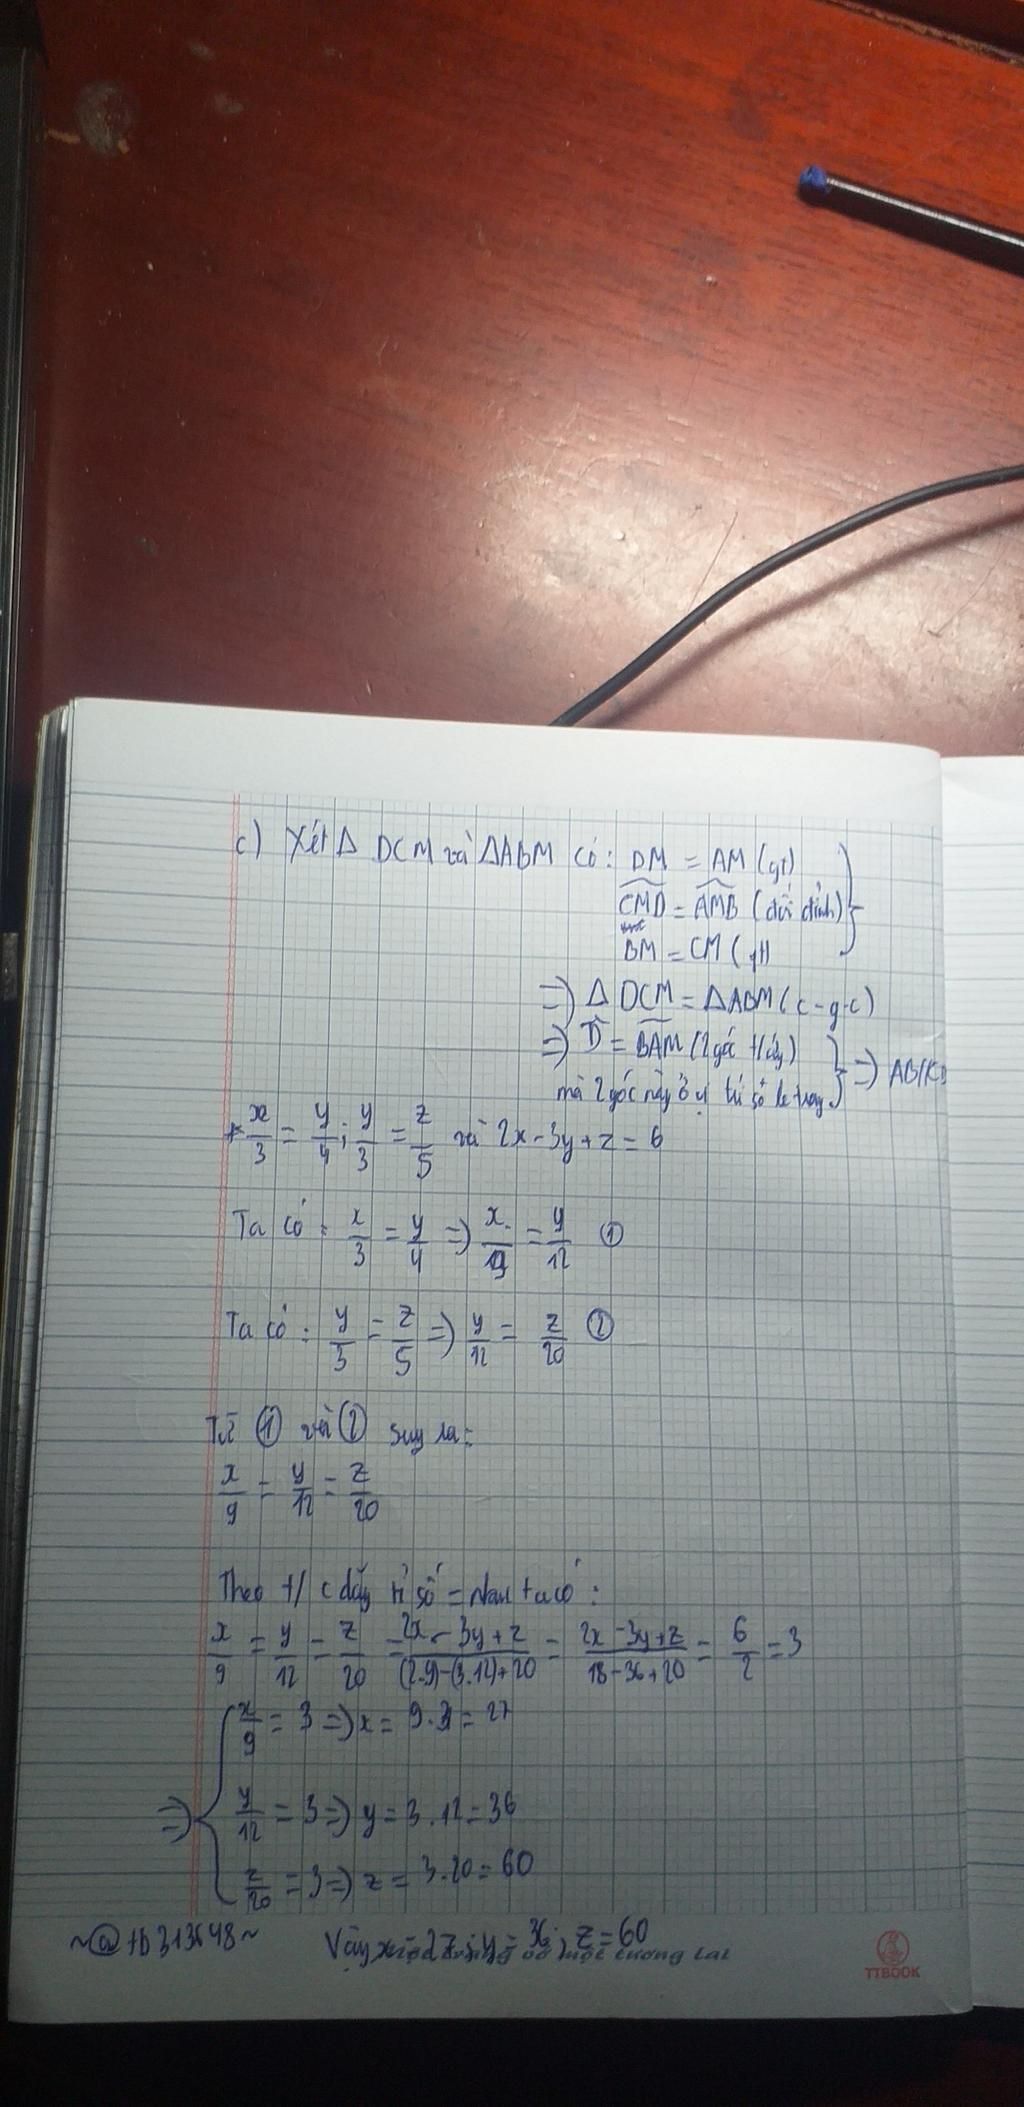 c) Xét Δ DCM và ΔABM có: DM = AM (gt)
CMD = AMB (đối đỉnh)
BM = CM (gt)
=> Δ DCM = ΔABM (c-g-c)
=> D = BAM (2 góc t/ứng)
mà 2 góc này ở vị trí so le trong } => AB//CD
* x/3 = y/4 ; y/3 = z/5 và 2x - 3y + z = 6
Ta có : x/3 = y/4 => x/9 = y/12 ①
Ta có : y/3 = z/5 => y/12 = z/20 ②
Từ ① và ② suy ra :
x/9 = y/12 = z/20
Theo t/c dãy tỉ số = nhau ta có :
x/9 = y/12 = z/20 = 2x - 3y + z/(2.9)-(3.12)+20 = 2x - 3y + z/18 - 36 + 20 = 6/2 = 3
x/9 = 3 => x = 9.3 = 27
=> y/12 = 3 => y = 3.12 = 36
z/20 = 3 => z = 3.20 = 60
~@tb313648~ Vậy x = 27 ; y = 36 ; z = 60
một tương lai
TTBOOK